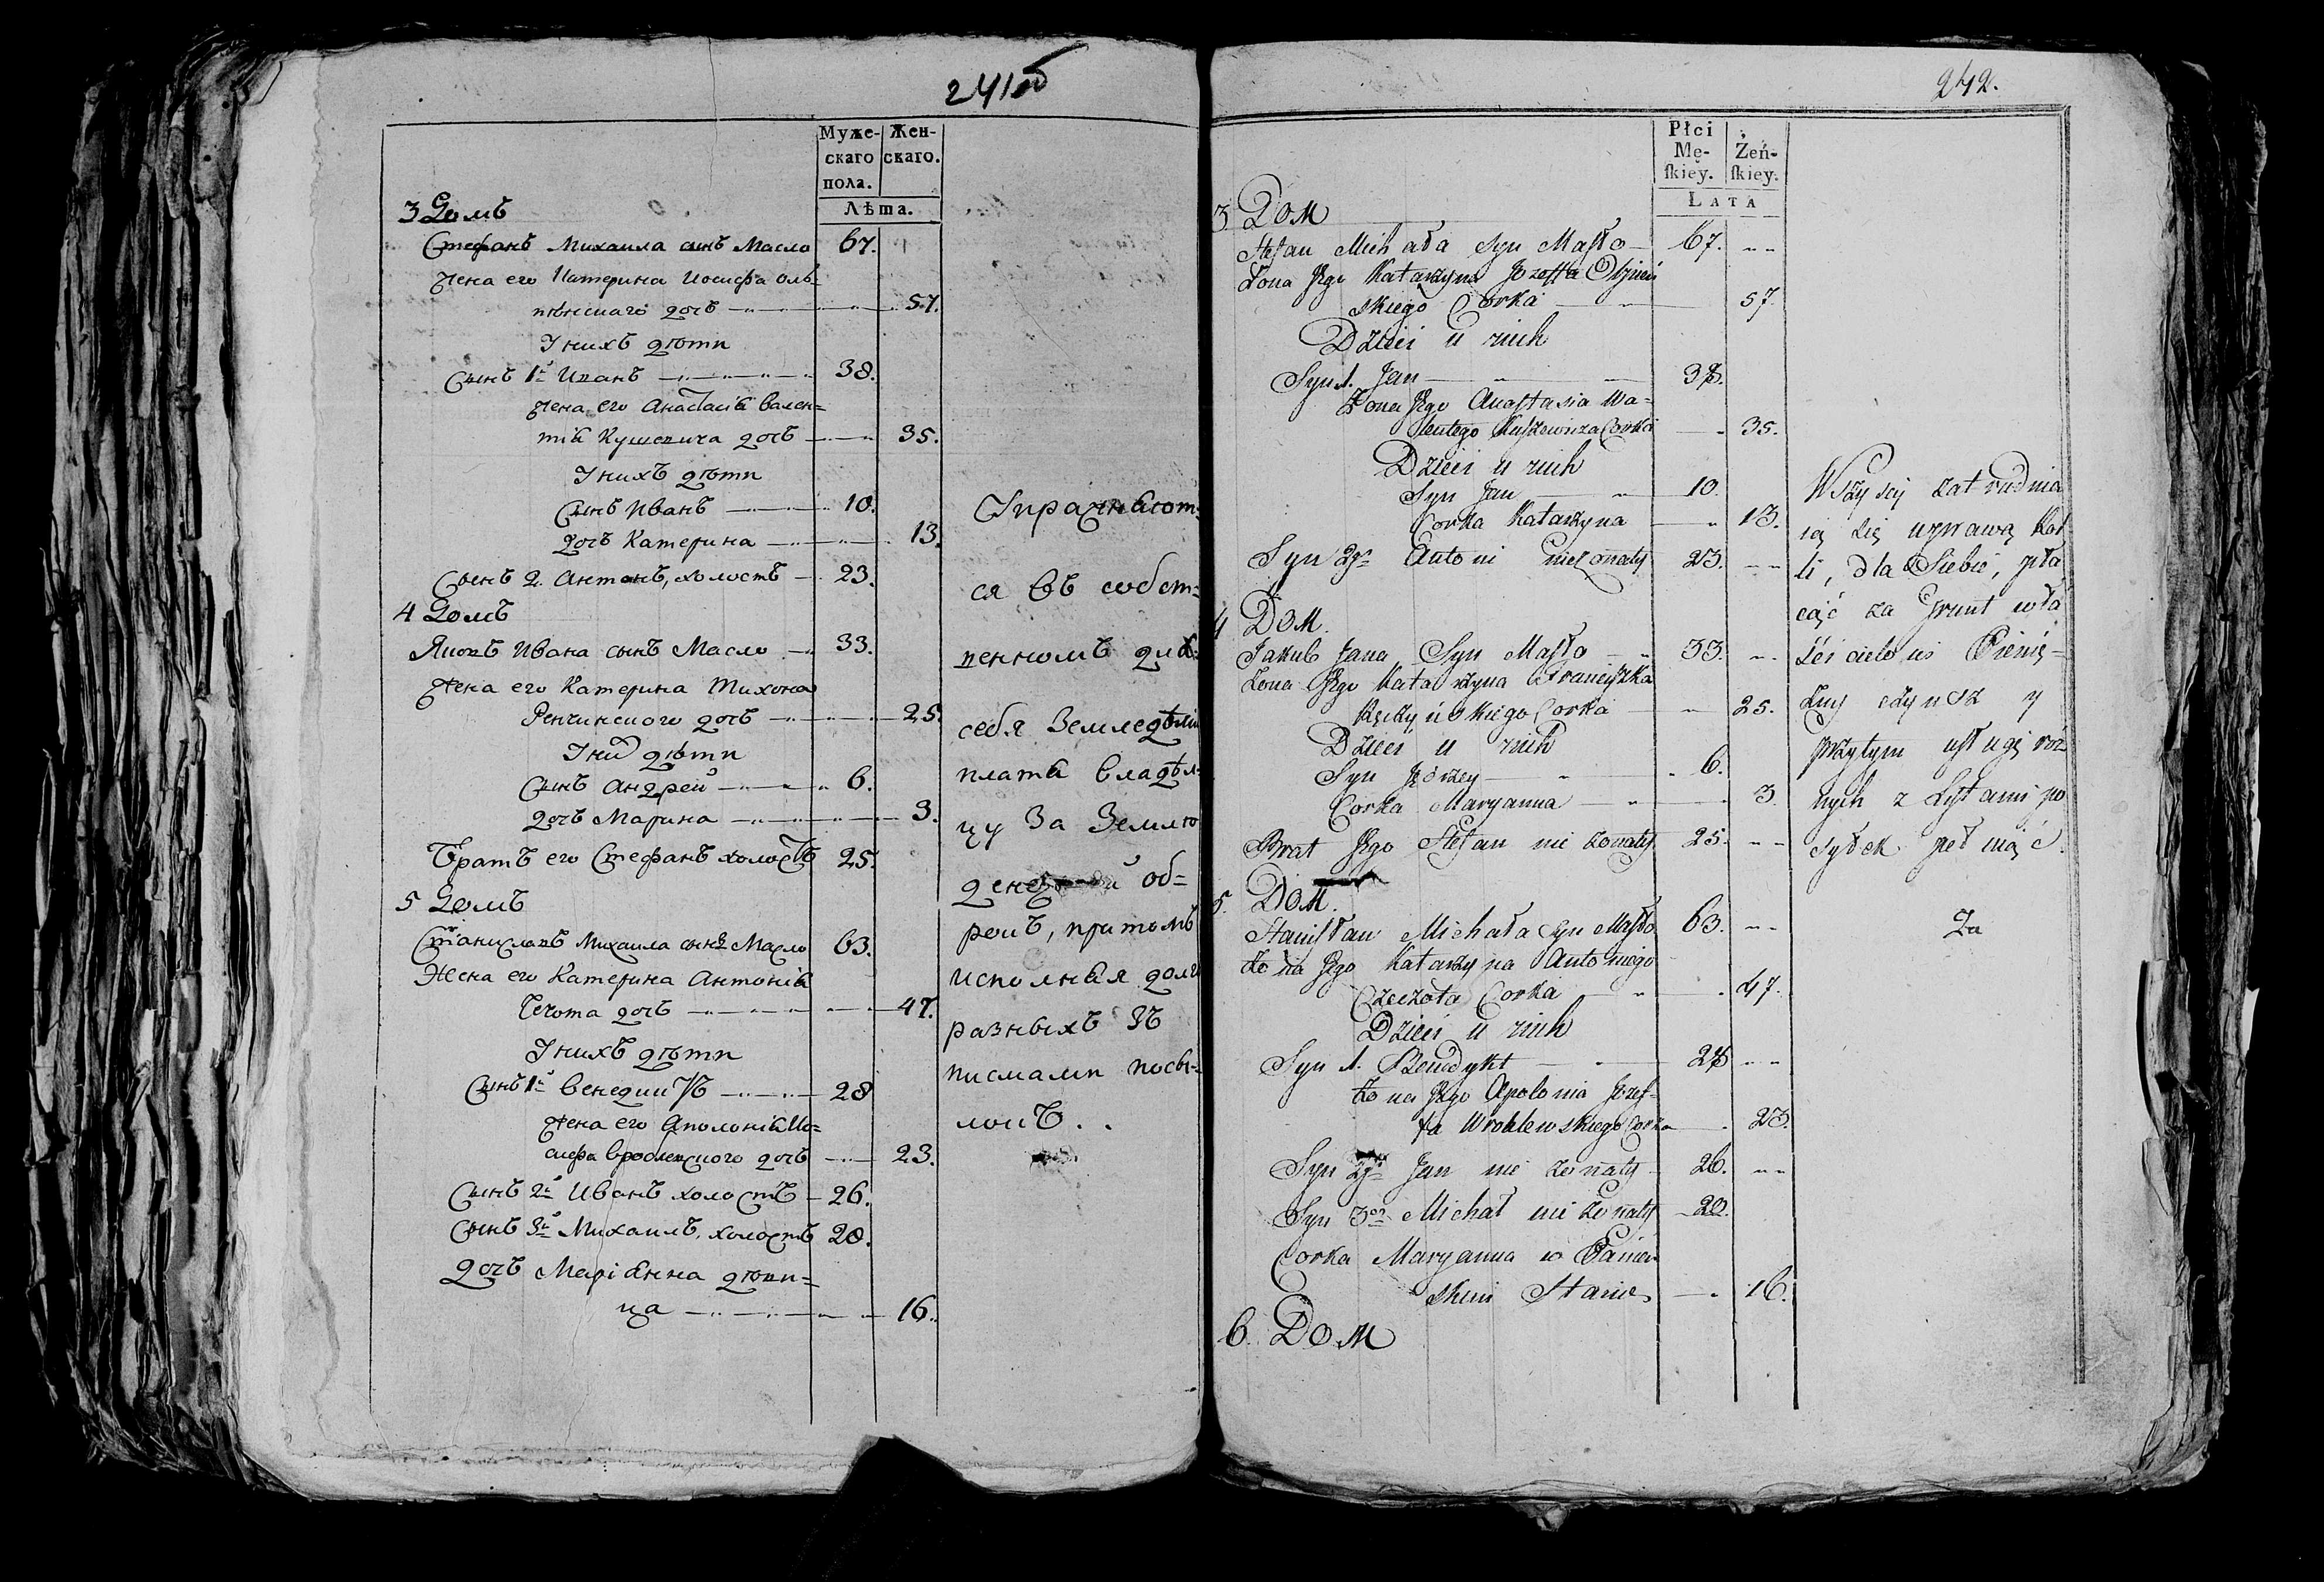 241об
Муже- Жен-
скаго скаго.
пола.
Лѣта.
3 Домъ
Стефанъ Михаила сынъ Масло 67.
Жена его Катерина Иосифа Оль-
скаго дочъ 57.
У нихъ дѣти
Сынъ 1й Иванъ 38.
Жена его Анастасія Вален=
тія Кушевича дочъ 35.
У нихъ дѣти
Сынъ Иванъ 10.
Дочъ Катерина 13.
Сынъ 2. Антонъ, холостъ 23.
4 Домъ
Яковъ Ивана сынъ Масло 33.
Жена его Катерина Тихона
Ренчинского дочъ 25.
У них дѣти
Сынъ Андрей 6.
Дочъ Марина 3.
Братъ его Стефанъ холостъ 25.
5 Домъ
Станиславъ Михаила сынъ Масло 63.
Жена его Катерина Антонія
Чечота дочъ 47.
У нихъ дѣти
Сынъ 1й Венедиктъ 28
Жена его Аполонія Ио=
сифа Вроблевского дочъ 23.
Сынъ 2й Иванъ холостъ 26.
Сынъ 3й Михаилъ, холостъ 20.
Дочъ Маріянна дѣви=
ца 16.
Упражняют=
ся въ собст=
венномъ для
себя Земледѣліи
платя владѣл-
цу за Землю
об=
рокъ, притомъ
исполняя долг
разныхъ зъ
писмами посы-
локъ..
242.
Płci
Mę- Żeń-
skiey. skiey.
LATA
3 Dom
Stefan Michała Syn Masło 67.
Żona Jego Katarzyna Jozeffa
skiego Corka 57.
Dzieci u nich
Syn 1. Jan 38.
Żona Jego Anastasia Wa=
lentego Kuszewicza Corka 35.
Dzieci u nich
Syn Jan 10.
Corka Katarzyna 13.
Syn 2gi Antoni nieżonaty 23.
4 Dom.
Jakub Jana Syn Masło 33.
Żona Jego Katarzyna Franciszka
Ręczyńskiego Corka 25.
Dzieci u nich
Syn Jędrzey 6.
Corka Maryanna 3.
Brat Jego Stefan nie żonaty 25.
5. Dom.
Stanisław Michała Syn Masło 63.
Żona Jego Katarzyna Antoniego
Czeczota Corka 47.
Dzieci u nich
Syn 1. Benedykt 28
Żona Jego Apolonia Jozef-
fa Wroblewskiego Corka 23.
Syn 2gi Jan nie żonaty 26.
Syn 3ci Michał nie żonaty 20.
Corka Maryanna w Panień
skim Stanie 16.
6. Dom
Wszyscy zatrudnia
ią się uprawą
li, dla Siebie, pła
cąc za Grunt wła
ścicielowi Pienię-
żny czynsz y
przytym usługę róż
nych z Listami po
syłek pełniąc.